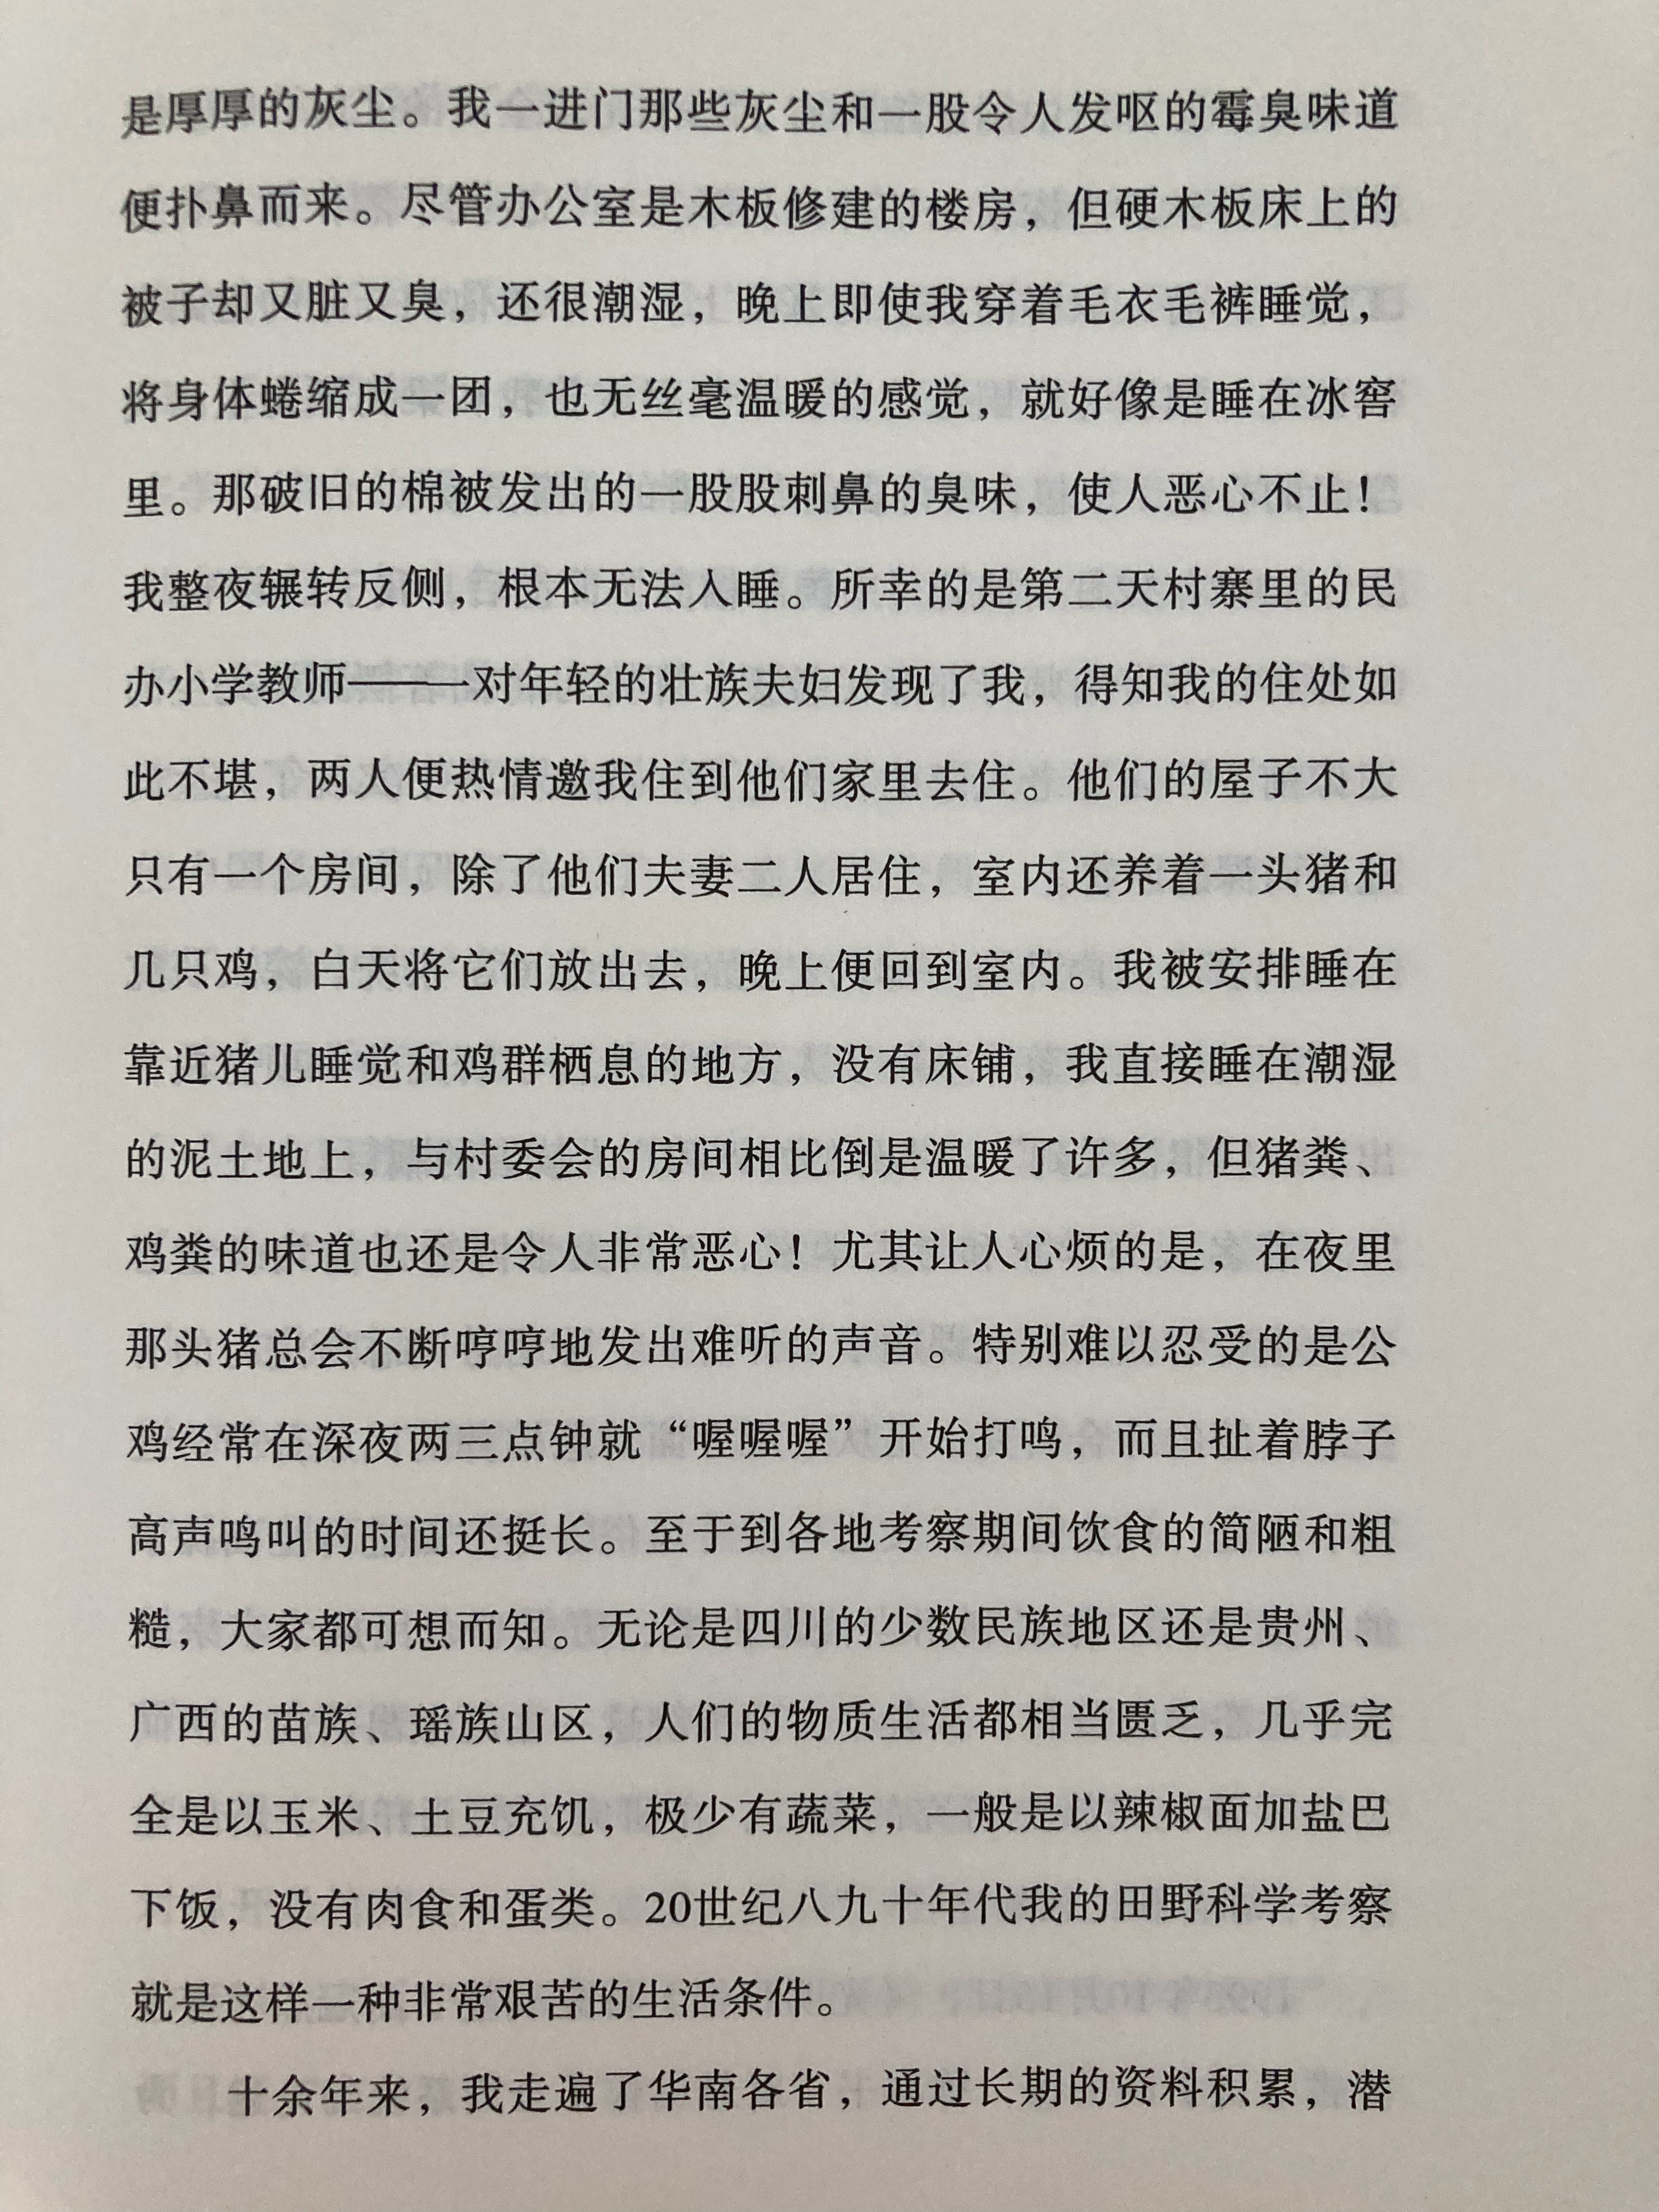 是厚厚的灰尘。我一进门那些灰尘和一股令人发呕的霉臭味道
便扑鼻而来。尽管办公室是木板修建的楼房，但硬木板床上的
被子却又脏又臭，还很潮湿，晚上即使我穿着毛衣毛裤睡觉，
将身体蜷缩成一团，也无丝毫温暖的感觉，就好像是睡在冰窖
里。那破旧的棉被发出的一股股刺鼻的臭味，使人恶心不止！
我整夜辗转反侧，根本无法入睡。所幸的是第二天村寨里的民
办小学教师——一对年轻的壮族夫妇发现了我，得知我的住处如
此不堪，两人便热情邀我住到他们家里去住。他们的屋子不大
只有一个房间，除了他们夫妻二人居住，室内还养着一头猪和
几只鸡，白天将它们放出去，晚上便回到室内。我被安排睡在
靠近猪儿睡觉和鸡群栖息的地方，没有床铺，我直接睡在潮湿
的泥土地上，与村委会的房间相比倒是温暖了许多，但猪粪、
鸡粪的味道也还是令人非常恶心！尤其让人心烦的是，在夜里
那头猪总会不断哼哼地发出难听的声音。特别难以忍受的是公
鸡经常在深夜两三点钟就“喔喔喔”开始打鸣，而且扯着脖子
高声鸣叫的时间还挺长。至于到各地考察期间饮食的简陋和粗
糙，大家都可想而知。无论是四川的少数民族地区还是贵州、
广西的苗族、瑶族山区，人们的物质生活都相当匮乏，几乎完
全是以玉米、土豆充饥，极少有蔬菜，一般是以辣椒面加盐巴
下饭，没有肉食和蛋类。20世纪八九十年代我的田野科学考察
就是这样一种非常艰苦的生活条件。
十余年来，我走遍了华南各省，通过长期的资料积累，潜